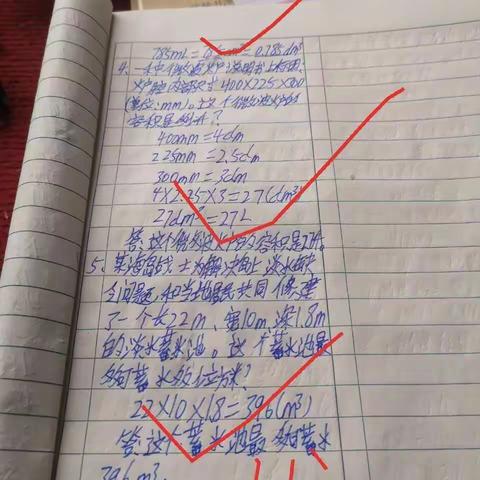 785mL=785cm³=0.785dm³
4、一种微波炉说明书上标明,
炉腔内部尺寸400×225×300
(单位:mm)。这个微波炉的
容积是多少升?
400mm=4dm
225mm=2.5dm
300mm=3dm
4×2.25×3=27(dm³)
27dm³=27L
答:这个微波炉的容积是27升。
5、某海岛战士为解决岛上淡水缺
乏问题,和当地居民共同修建
了一个长22m、宽10m、深1.8m
的淡水蓄水池。这个蓄水池最
多可蓄水多少立方米?
22×10×18=396(m³)
答:这个蓄水池最多可蓄水
396m³.